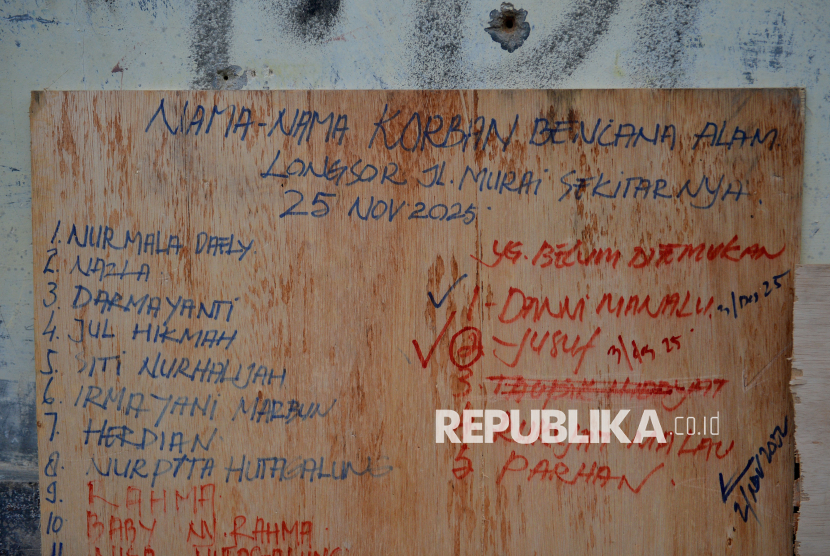 NAMA-NAMA KORBAN BENCANA ALAM
LONGSOR JL. MURAI SEKITARNYA.
25 NOV 2025.
1. NURMALA DAELY
2. NAZLA
3. DARMAYANTI
4. JUL HIKMAH
5. SITI NURHALIJAH
6. IRMAYANI MARBUN
7. HERDIAN
8. NURDITTA HUTAGALUNG
9. RAHMA
10 BABY NN. RAHMA.
11 HUTAGALUNG
YG. BELUM DITEMUKAN
1. DANNI MANALU 3/Des 25
2 JUSUF 3/Des 25
3
MALAU
5 PARHAN.
REPUBLIKA.co.id